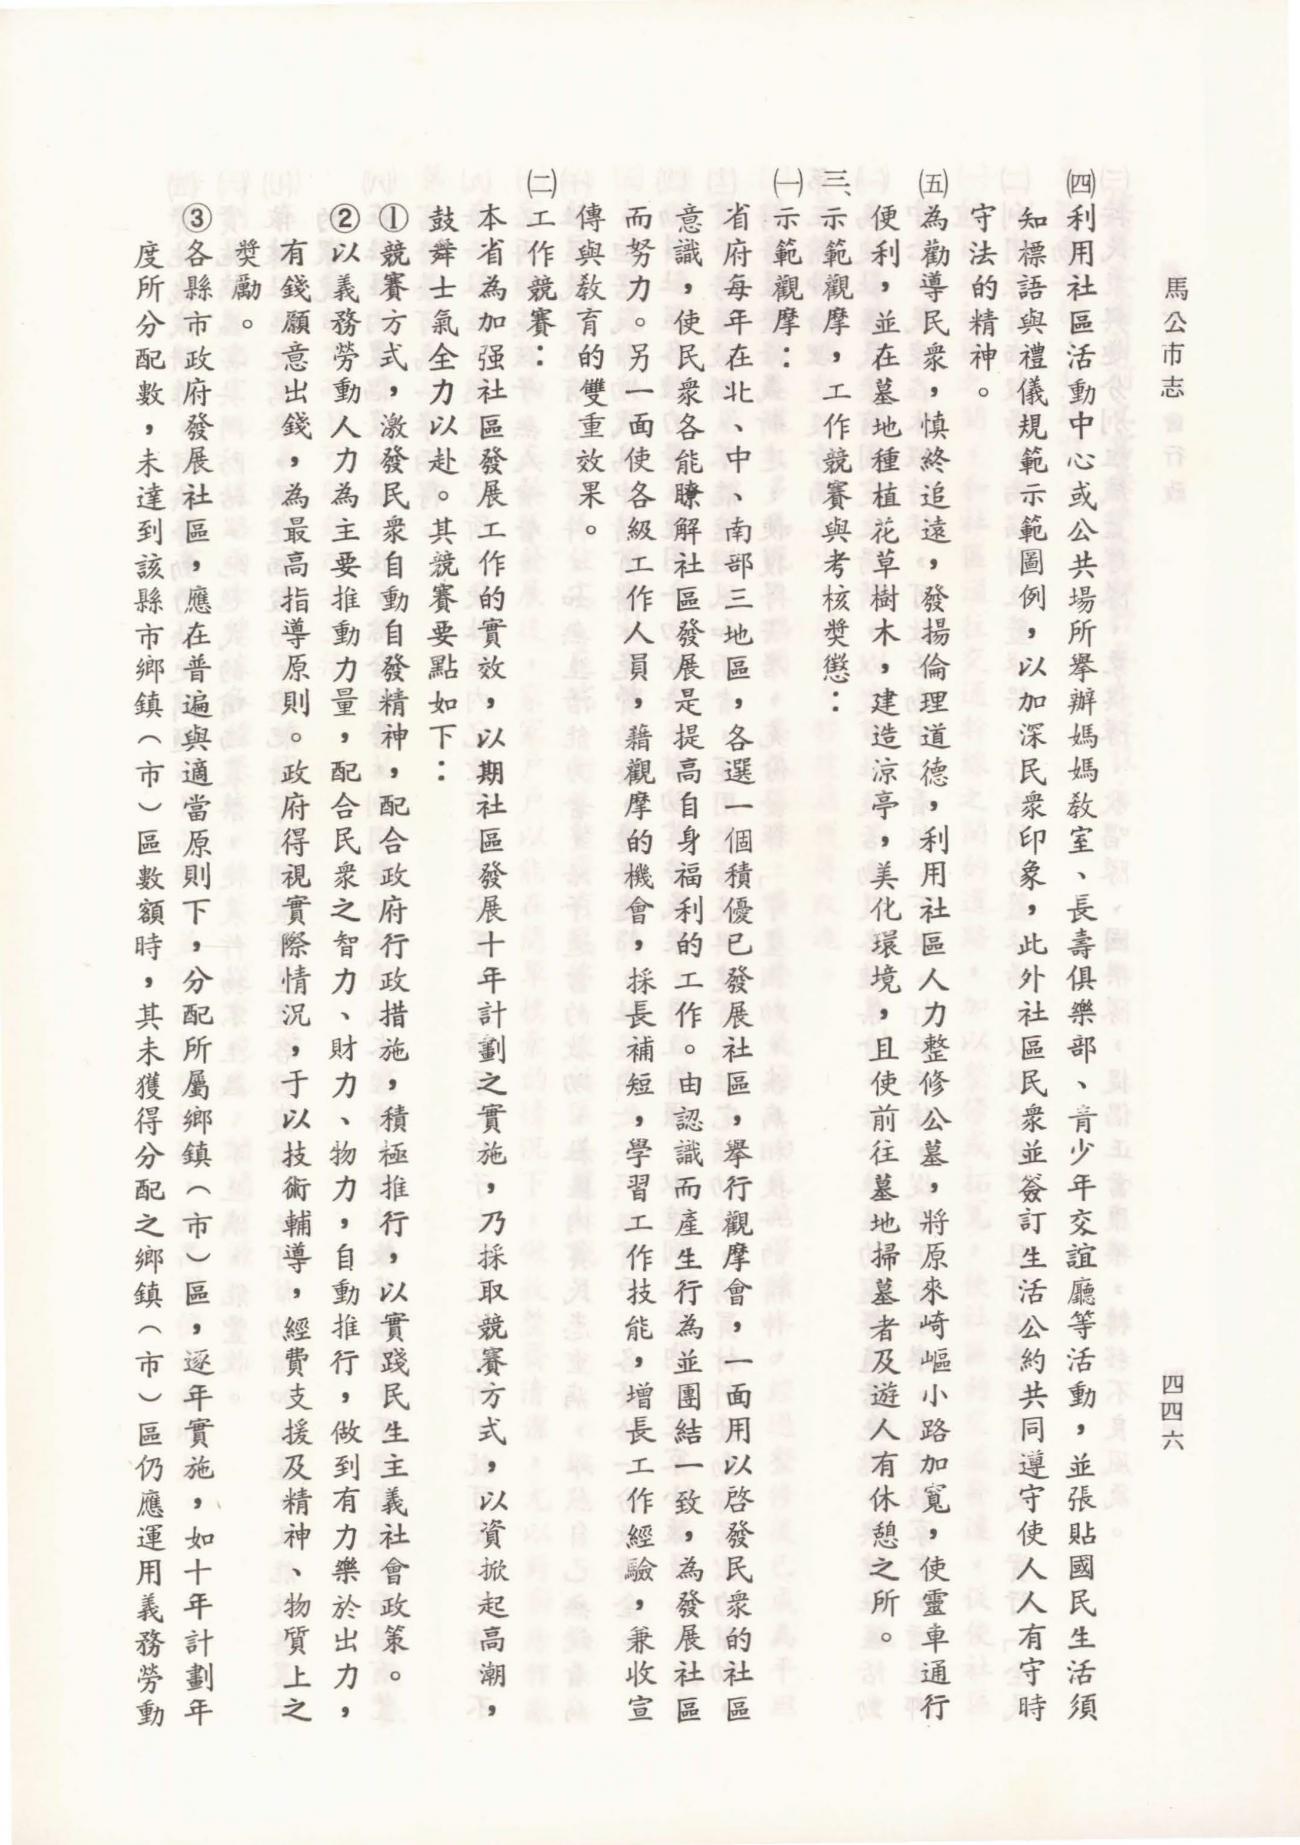 馬公市志
四四六
㈣利用社區活動中心或公共場所舉辦媽媽教室、長壽俱樂部、青少年交誼廳等活動，並張貼國民生活須
知標語與禮儀規範示範圖例，以加深民衆印象，此外社區民衆並簽訂生活公約共同遵守使人人有守時
守法的精神。
㈤為勸導民衆，慎終追遠，發揚倫理道德，利用社區人力整修公墓，將原來崎嶇小路加寬，使靈車通行
便利，並在墓地種植花草樹木，建造涼亭，美化環境，且使前往墓地掃墓者及遊人有休憩之所。
三、示範觀摩，工作競賽與考核獎懲：
㈠示範觀摩：
省府每年在北、中、南部三地區，各選一個積優已發展社區，舉行觀摩會，一面用以啓發民衆的社區
意識，使民衆各能瞭解社區發展是提高自身福利的工作。由認識而產生行為並團結一致，為發展社區
而努力。另一面使各級工作人員，藉觀摩的機會，採長補短，學習工作技能，增長工作經驗，兼收宣
傳與敎育的雙重效果。
㈡工作競賽：
本省為加强社區發展工作的實效，以期社區發展十年計劃之實施，乃採取競賽方式，以資掀起高潮，
鼓舞士氣全力以赴。其競賽要點如下：
①競賽方式，激發民衆自動自發精神，配合政府行政措施，積極推行，以實踐民生主義社會政策。
②以義務勞動人力為主要推動力量，配合民衆之智力、財力、物力，自動推行，做到有力樂於出力，
有錢願意出錢，為最高指導原則。政府得視實際情況，于以技術輔導，經費支援及精神、物質上之
獎勵。
③各縣市政府發展社區，應在普遍與適當原則下，分配所屬鄉鎮（市）區，逐年實施，如十年計劃年
度所分配數，未達到該縣市鄉鎮（市）區數額時，其未獲得分配之鄉鎮（市）區仍應運用義務勞動